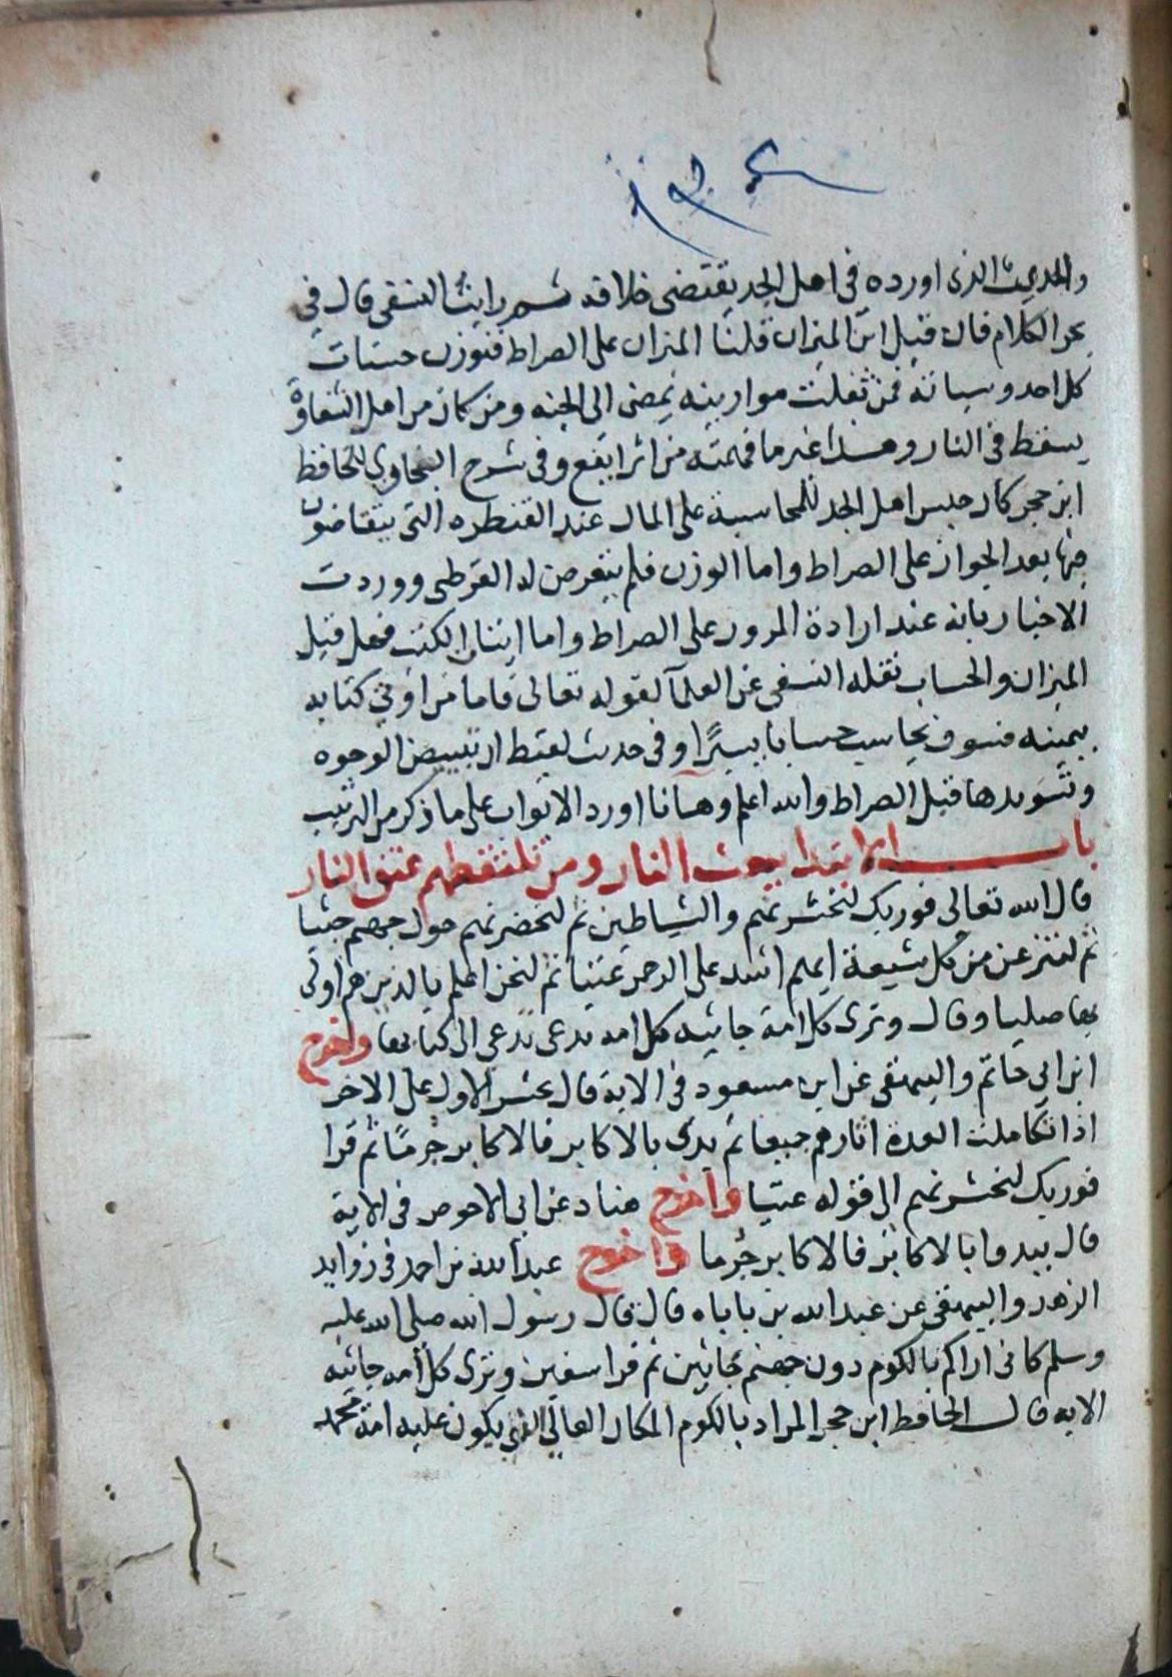 والحديث الذى اورده فى اهل الجد يقتضى خلافه ثم رايت النسفى قال في
بحر الكلام فان قيل اين الميزان قلنا الميزان على الصراط فتوزن حسنات
كل احد وسياته فمن ثقلت موازينه يمضى الى الجنه ومن كان من اهل الشقاوة
يسقط فى النار وهذا غير ما فهمته من اثر ايفع وفى شرح البخاري للحافظ
ابن حجر كان حبس اهل الجد للمحاسبة على المال عند القنطره التى يتقاضون
فيها بعد الجواز على الصراط واما الوزن فلم يتعرض له القرطبى ووردت
الاخبار بانه عند ارادة المرور على الصراط واما ايتا الكتب فهل قبل
الميزان والحساب نقله النسفى عن العلما لقوله تعالى فاما من اوتي كتابه
بيمينه فسوف يحاسب حسابا يسيرا وفى حديث لقيط ان تبييض الوجوه
وتسويدها قبل الصراط والله اعلم وها انا اورد الابواب على ما ذكر من الترتيب
باب الابتدا ببعث النار ومن تلتقطهم عنق النار
قال الله تعالى فوربك لنحشرنهم والشياطين ثم لنحضرنهم حول جهنم جثيا
ثم لننزعن من كل شيعة ايهم اشد على الرحمن عتيا ثم لنحن اعلم بالذين هم اولى
بها صليا وقال وترى كل امة جاثيه كل امه تدعى الى كتابها واخرج
ابن ابى حاتم والبيهقى عن ابن مسعود فى الاية قال يحشر الاول على الاخر
اذا تكاملت العدة اثارهم جميعا ثم يدى بالاكابر فالاكابر جرما ثم قرا
فوربك لنحشرنهم الى قوله عتيا واخرج هناد عن ابى الاحوص فى الاية
قال يبدوا بالاكابر فالاكابر جرما واخرج عبد الله بن احمد فى زوايد
الزهد والبيهقى عن عبد الله بن باباه قال قال رسول الله صلى الله عليه
وسلم كانى اراكم بالكوم دون جهنم جاثين ثم قرا سفين وترى كل امه جاثيه
الايه قال الحافظ ابن حجر المراد بالكوم المكان العالى الذي يكون عليه امة محمد